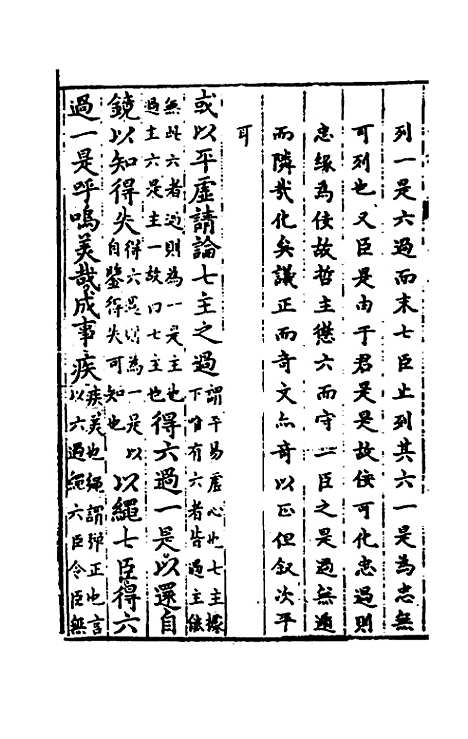 列一是六過而末七臣止列其六一是為忠無
可列也又臣是由于君是是故佞可化忠過則
忠緣為佞故哲主懲六而守一臣之是過無遁
而隣哉化矣議正而奇文亦奇以正但叙次平
耳
或以平虛請論七主之過謂平易虛心也七主據下唯有六者皆過主能
無此六者過則為一是主也過主六是主一故曰七主也得六過一是以還自
鏡以知得失得六過為一是以自鑒得失可知也以繩七臣得六
過一是呼嗚美哉成事疾疾美也繩謂彈正也言以六過繩六臣令臣無